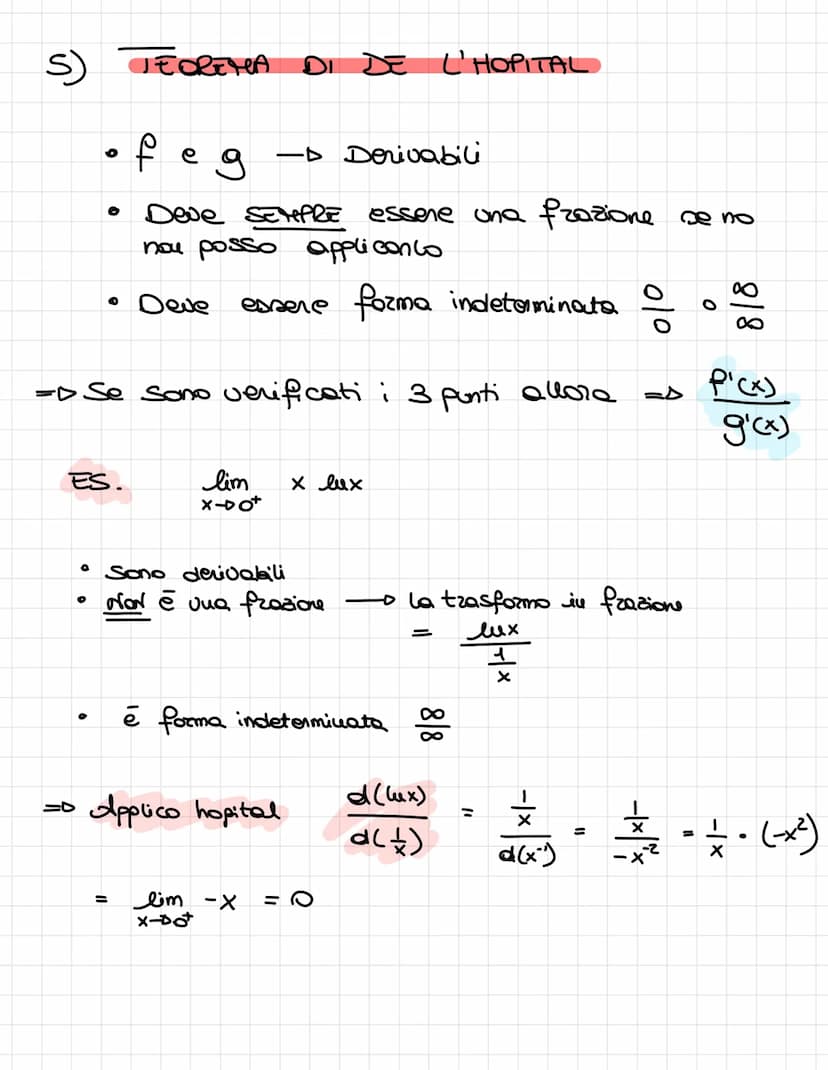 5) TEOREMA DI DE L'HOPITAL
• f e g → Derivabili
• Deve SEMPRE essere una frazione se no
non posso applicarlo
• Deve essere forma indeterminata 0/0 o ∞/∞
⇒ Se sono verificati i 3 punti allora ⇒ f'(x)/g'(x)
ES. lim x→0⁺ x lnx
• Sono derivabili
• Non è una frazione → la trasformo in frazione
= lnx/(1/x)
• è forma indeterminata ∞/∞
⇒ Applico hopital d(lnx)/d(1/x) = (1/x)/d(x⁻¹) = (1/x)/(-x⁻²) = 1/x · (-x²)
= lim x→0⁺ -x = 0